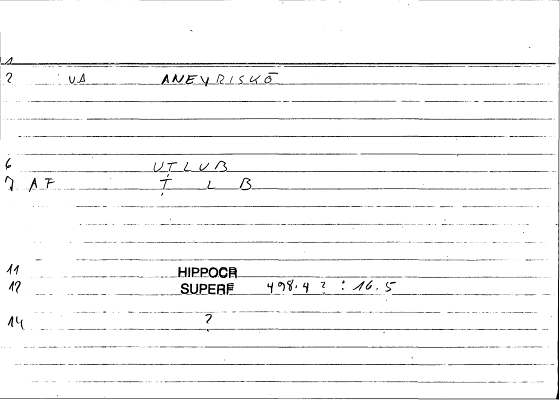 1
2 VA ANEYRISKŌ
6 UṬLUB
7 AF Ṭ L B
11 HIPPOCR
12 SUPERF 498.4 ? : 16.5
14 ?